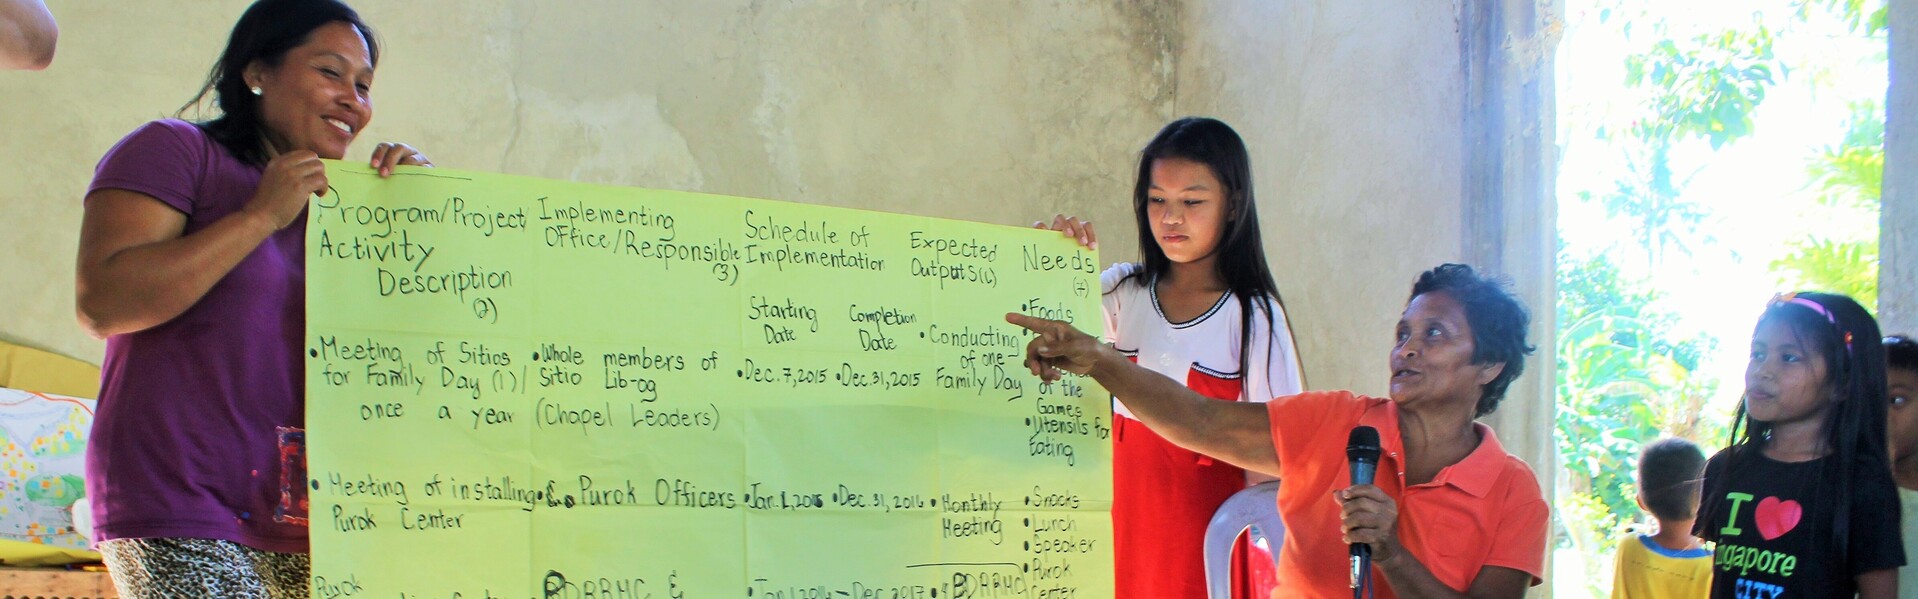 Program/Project/
Activity
Description
(2)
Implementing
Office/Responsible
(3)
Schedule of
Implementation
Starting
Date
Completion
Date
Expected
Outputs(6)
Needs
(7)
• Meeting of Sitios
for Family Day (1)/
once a year
• Whole members of
Sitio Lib-og
(Chapel Leaders)
• Dec. 7, 2015
• Dec. 31, 2015
• Conducting
of one
Family Day
• Foods
of the
Games
• Utensils for
Eating
• Meeting of installing
Purok Center
Purok Officers
• Jan. 1,
• Dec. 31, 2016
• Monthly
Meeting
• Snacks
• Lunch
• Speaker
• Purok
Center
Purok
BDRRMC &
• Jan. 1 2016 – Dec. 2017
• BDRRMC
I ♥
ngapore
CITY